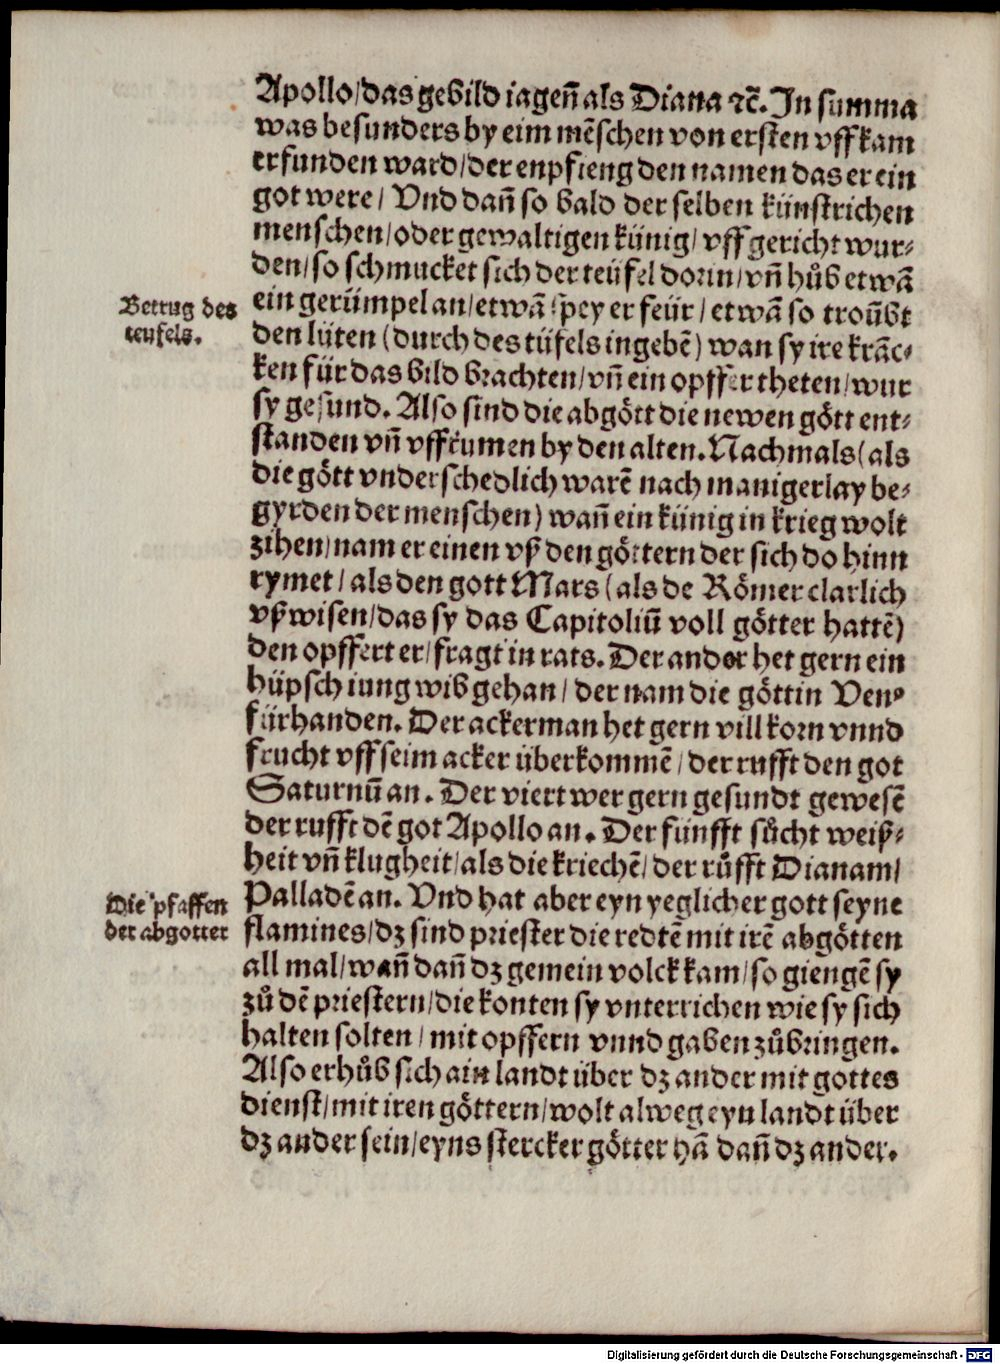 Apollo/das gebild iageñ als Diana ⁊c̃. In summa
was besunders by eim mẽschen von ersten vff kam
erfunden ward/der enpfieng den namen das er ein
got were/ Vnd dañ so bald der selben künstrichen
menschen/oder gewaltigen künig/vff gericht wur⸗
den/so schmucket sich der teüfel dorin/vñ hůb etwã
Betrug des
teufels.
ein gerümpel an/etwã spey er feür/etwã so troũbt
den lüten (durch des tüfels ingebẽ) wan sy ire krãc⸗
ken für das bild brachten/vñ ein opffer theten/wur
sy gesund. Also sind die abgött die newen gött ent⸗
standen vñ vffkumen by den alten. Nachmals (als
die gött vnderschedlich warẽ nach manigerlay be⸗
gyrden der menschen) wañ ein künig in krieg wolt
zihen/nam er einen vß den göttern der sich do hinn
rymet/als den gott Mars (als de Römer clarlich
vßwisen/das sy das Capitoliũ voll götter hattẽ)
den opffert er/fragt in rats. Der ander het gern ein
hüpsch iung wib gehan/der nam die göttin Venꝰ
fürhanden. Der ackerman het gern vill korn vnnd
frucht vff seim acker überkommẽ/der rufft den got
Saturnũ an. Der viert wer gern gesundt gewesẽ
der rufft dẽ got Apollo an. Der fünfft sůcht weiß⸗
heit vñ klugheit/als die kriechẽ/der růfft Dianam/
Die pfaffen
der abgotter
Palladẽ an. Vnd hat aber eyn yeglicher gott seyne
flamines/dz sind priester die redtẽ mit irẽ abgötten
all mal/wañ dañ dz gemein volck kam/so giengẽ sy
zů dẽ priestern/die konten sy vnterrichen wie sy sich
halten solten/mit opffern vnnd gaben zůbringen.
Also erhůb sich ain landt über dz ander mit gottes
dienst/mit iren göttern/wolt alweg eyn landt über
dz ander sein/eyns stercker götter hã dañ dz ander.
Digitalisierung gefördert durch die Deutsche Forschungsgemeinschaft - DFG